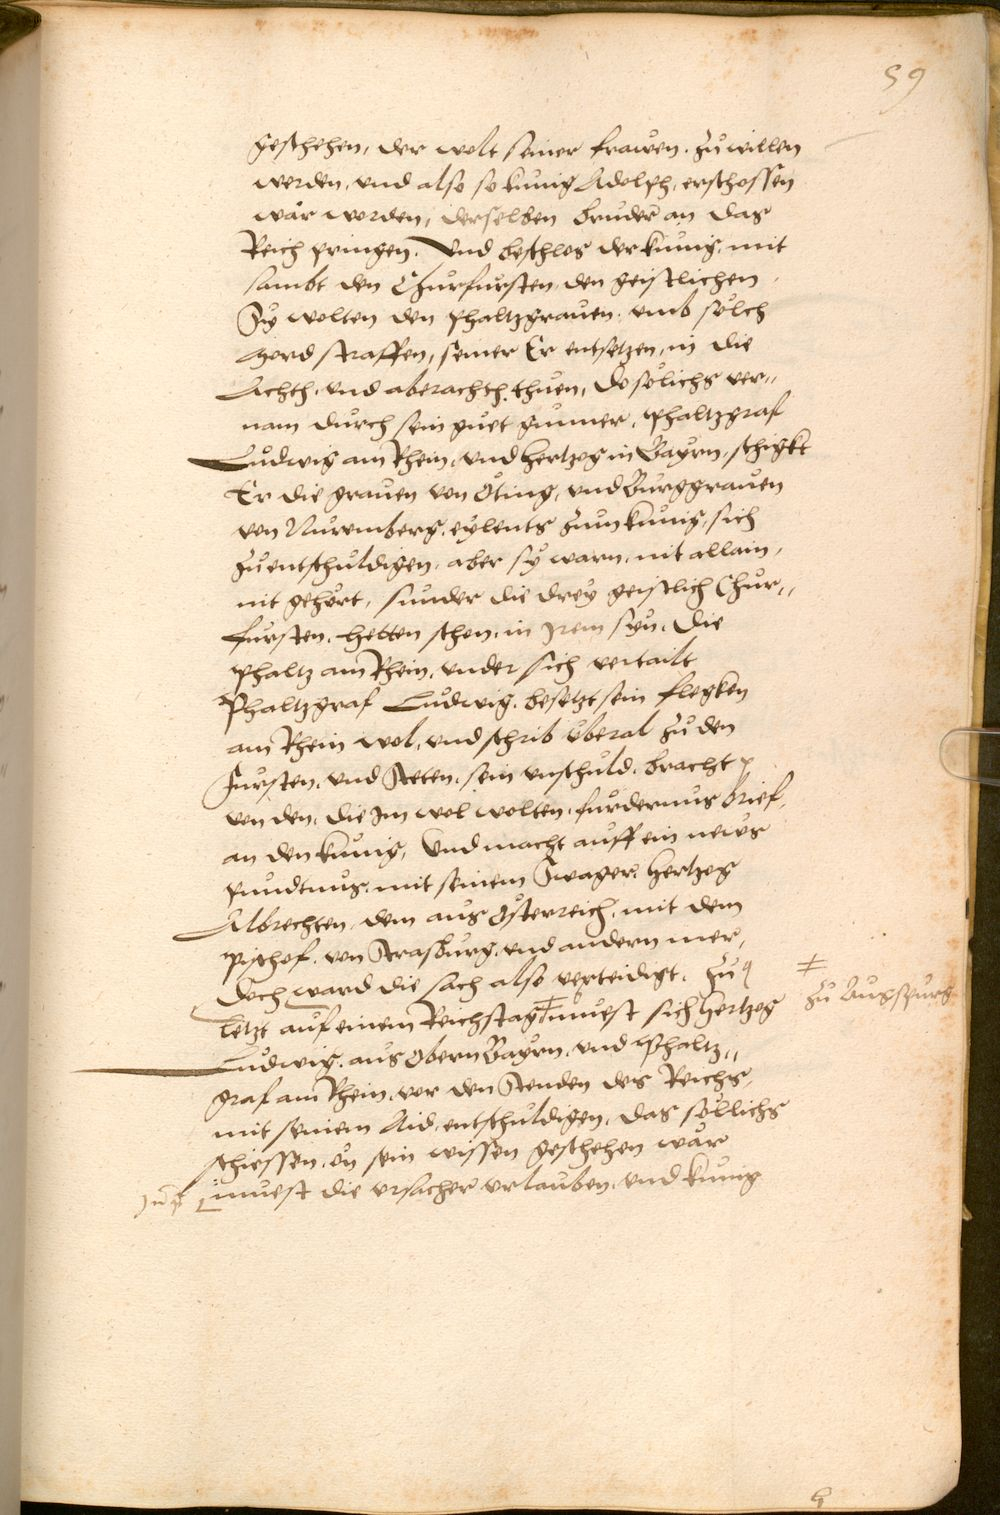 59
geschehen, der wolt seiner frawen. zu willen
werden, vnd also so kunig Adolph, erschossen
wär worden, derselben bruder an das
Reich pringen. Vnd beschlos der kunig, mit
sambt den Churfursten, den geistlichen
Sy wolten den phaltzgrauen. vmb solch
Mord straffen, seiner Er entsetzen, in die
Achth. vnd aberachth thuen, do solichs ver„
nam durch sein guet gunner, phaltzgraf
Ludwig am Rhein, vnd hertzog in Bayrn, schigkt
Er die grauen von Öting, vnd Burggrauen
von Nuremberg, eylents zum kunig, sich
zu entschuldigen, aber sy warn, nit allain,
nit gehört, sunder die drey geistlich Chur„
fursten, hetten schon, in Irem syn, die
phaltz am Rhein, vnder sich vertailt
Phaltzgraf Ludwig, besetzt sein flegken
am Rhein wol, vnd schrib überal zu den
Fursten, vnd Steten, sein vnschuld, bracht
von den, die Im wol wolten, furdernus brief,
an den kunig, Vnd macht auff ein news
pundtnus, mit seinem Swager, hertzog
Albrechten, dem aus Österreich, mit dem
pischof, von Strasburg, vnd andern mer,
Doch ward die sach also verteidigt. Zu
letzt auf einem Reichstag ‡ muest sich hertzog
‡ zu Augspurg
Ludwig, aus Obern Bayrn, vnd Phaltz„
graf am Rhein, vor den Stenden des Reichs,
mit seinem Aid, entschuldigen, das söllichs
schiessen, on sein wissen geschehen wär
muest die vrsacher vrlauben, vnd kunig